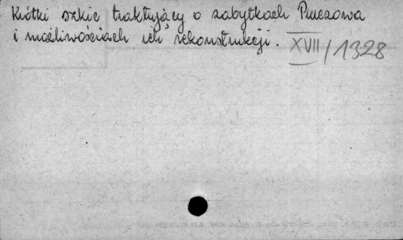 Krótki szkic traktujący o zabytkach Pińczowa
i możliwościach ich rekonstrukcji.
XVII/1328